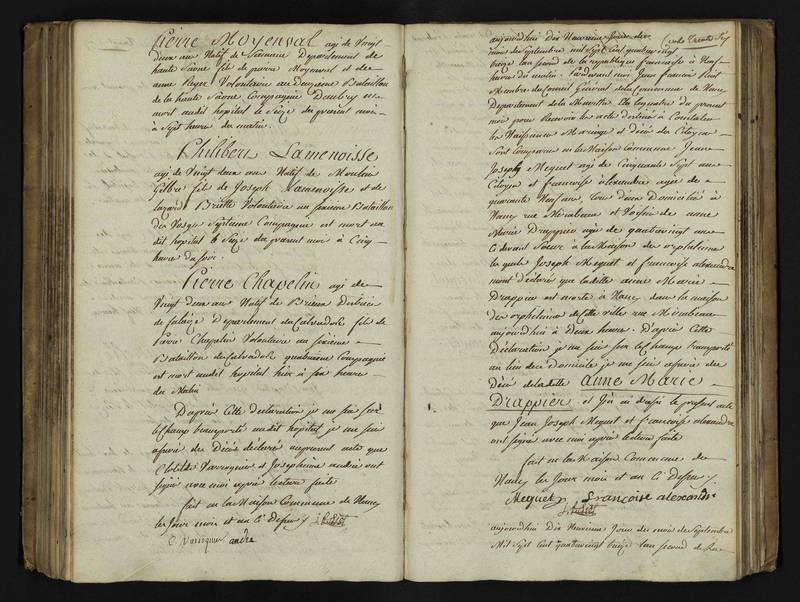 Pierre Moyenval agé de Vingt
deux ans Natif de Département de
haute Saône fils de pierre Moyenval et de
anne Payer Volontaire au Bataillon
de la haute Saône Compagnie est
mort audit hopital le Seize du present mois
à Sept heures du matin.
Philibert Lamenoisse
agé de Vingt deux ans Natif de Moulin
fils de Joseph Lamenoisse et de
Volontaire au sixieme Bataillon
des Vosges Septieme Compagnie est mort au
dit hopital le Seize du present mois à Cinq
heures du soir.
Pierre Chapelin agé de
Vingt deux ans Natif de
de falaize Département du Calvados fils de
Pierre Chapelin Volontaire au sixieme
Bataillon du Calvados quatrieme Compagnie
est mort audit hopital hier à six heures
du Matin
D'après Cette declaration je me suis sur
le Champ transporté audit hopital je me suis
assuré des Décès déclarés au present acte que
Clotilde Varroquier et Josephine andré ont
signé avec moi après lecture faite
fait en la Maison Commune de Nancy
les Jour mois et an Ci dessus
andre
aujourd'hui Dix Neuvieme Jour du
mois de Septembre mil Sept Cent quatre vingt
treize l'an Second de la republique francaise à Neuf
heures du matin. Pardevant moi Jean francois
Membre du Conseil Général de la Commune de Nancy
Département de la Meurthe élu le quatre du present
mois pour Recevoir les actes destinés à Constater
les Naissances Mariages et Décès des Citoyens
Sont Comparus en la Maison Commune Jean
Joseph Mequet agé de Cinquante Sept ans
Citoyen et francoise alexandre agée de
quarante Neuf ans, tous deux Domiciliés à
Nancy rue Mirabeau et Voisins de anne
Marie Drappier agée de quatre vingt ans
Ci devant Sœur à la Maison des orphelines
lesquels Joseph Mequet et francoise alexandre
mont déclaré que ladite anne Marie
Drappier est morte à Nancy dans la maison
des orphelines de Cette ville rue Mirabeau
aujourd'hui à Deux heures. D'après Cette
Déclaration je me suis sur le Champ transporté
au lieu de ce Domicile je me suis assuré du
Décès de ladite Anne Marie
Drappier et J'en ai dressé le present acte
que Jean Joseph Mequet et francoise alexandre
ont signés avec moi après lecture faite
fait en la Maison Commune de
Nancy les Jour mois et an Ci dessus
Mequet françoise alexandre
aujourd'hui Dix Neuvieme Jour du mois de Septembre
Mil Sept Cent quatre vingt treize l'an second de la